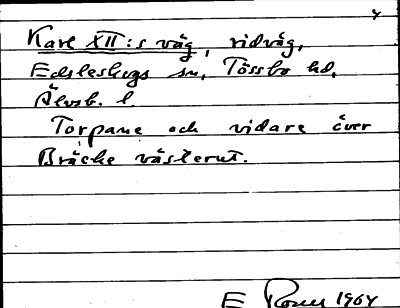 Karl XII:s väg, ridväg,
Edsleskogs sn, Tössbo hd,
Älvsb. l
Torpane och vidare över
Bräcke västerut.
E Rosell 1964